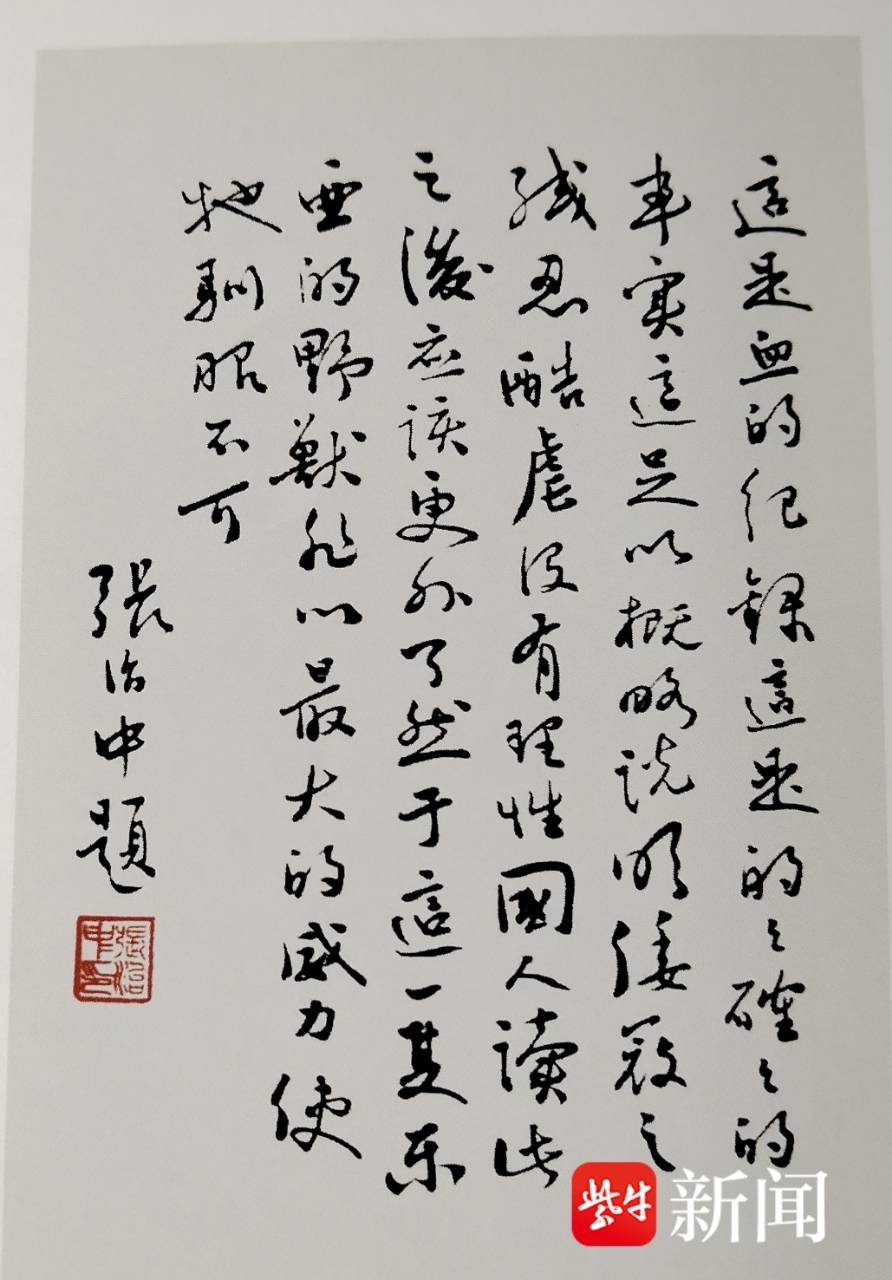 這是血的紀錄這是的々確々的
事實這足以概略説明倭寇之
殘忍酷虐没有理性國人讀此
之後应該更外了然于這一隻东
亜的野獸非以最大的威力使
牠馴服不可
張治中題
張治中印
紫牛新闻